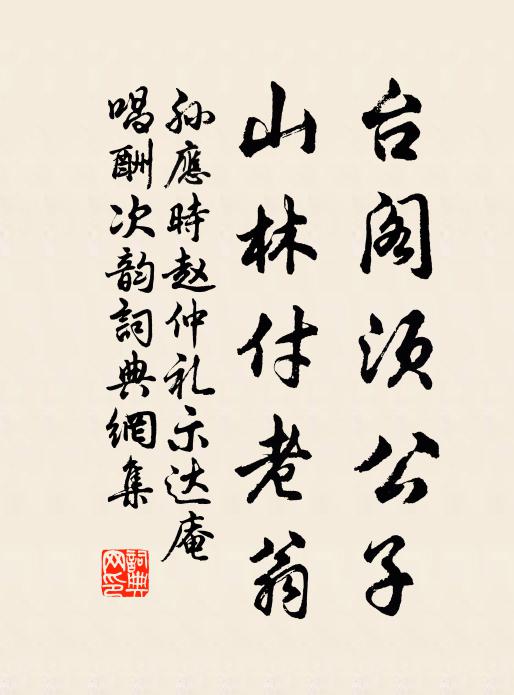 台阁须公子
山林付老翁
孙應時赵仲礼示达庵
唱酬次韵詞典網集
詞典
网印